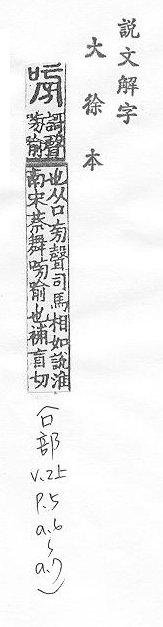 説文解字
大徐本
嗙
謌聲
嗙喻
也从口㫄聲司馬相如說淮
南宋蔡舞嗙喻也補盲切
(口部
v.2上
P.5
a.6
~
a.7)